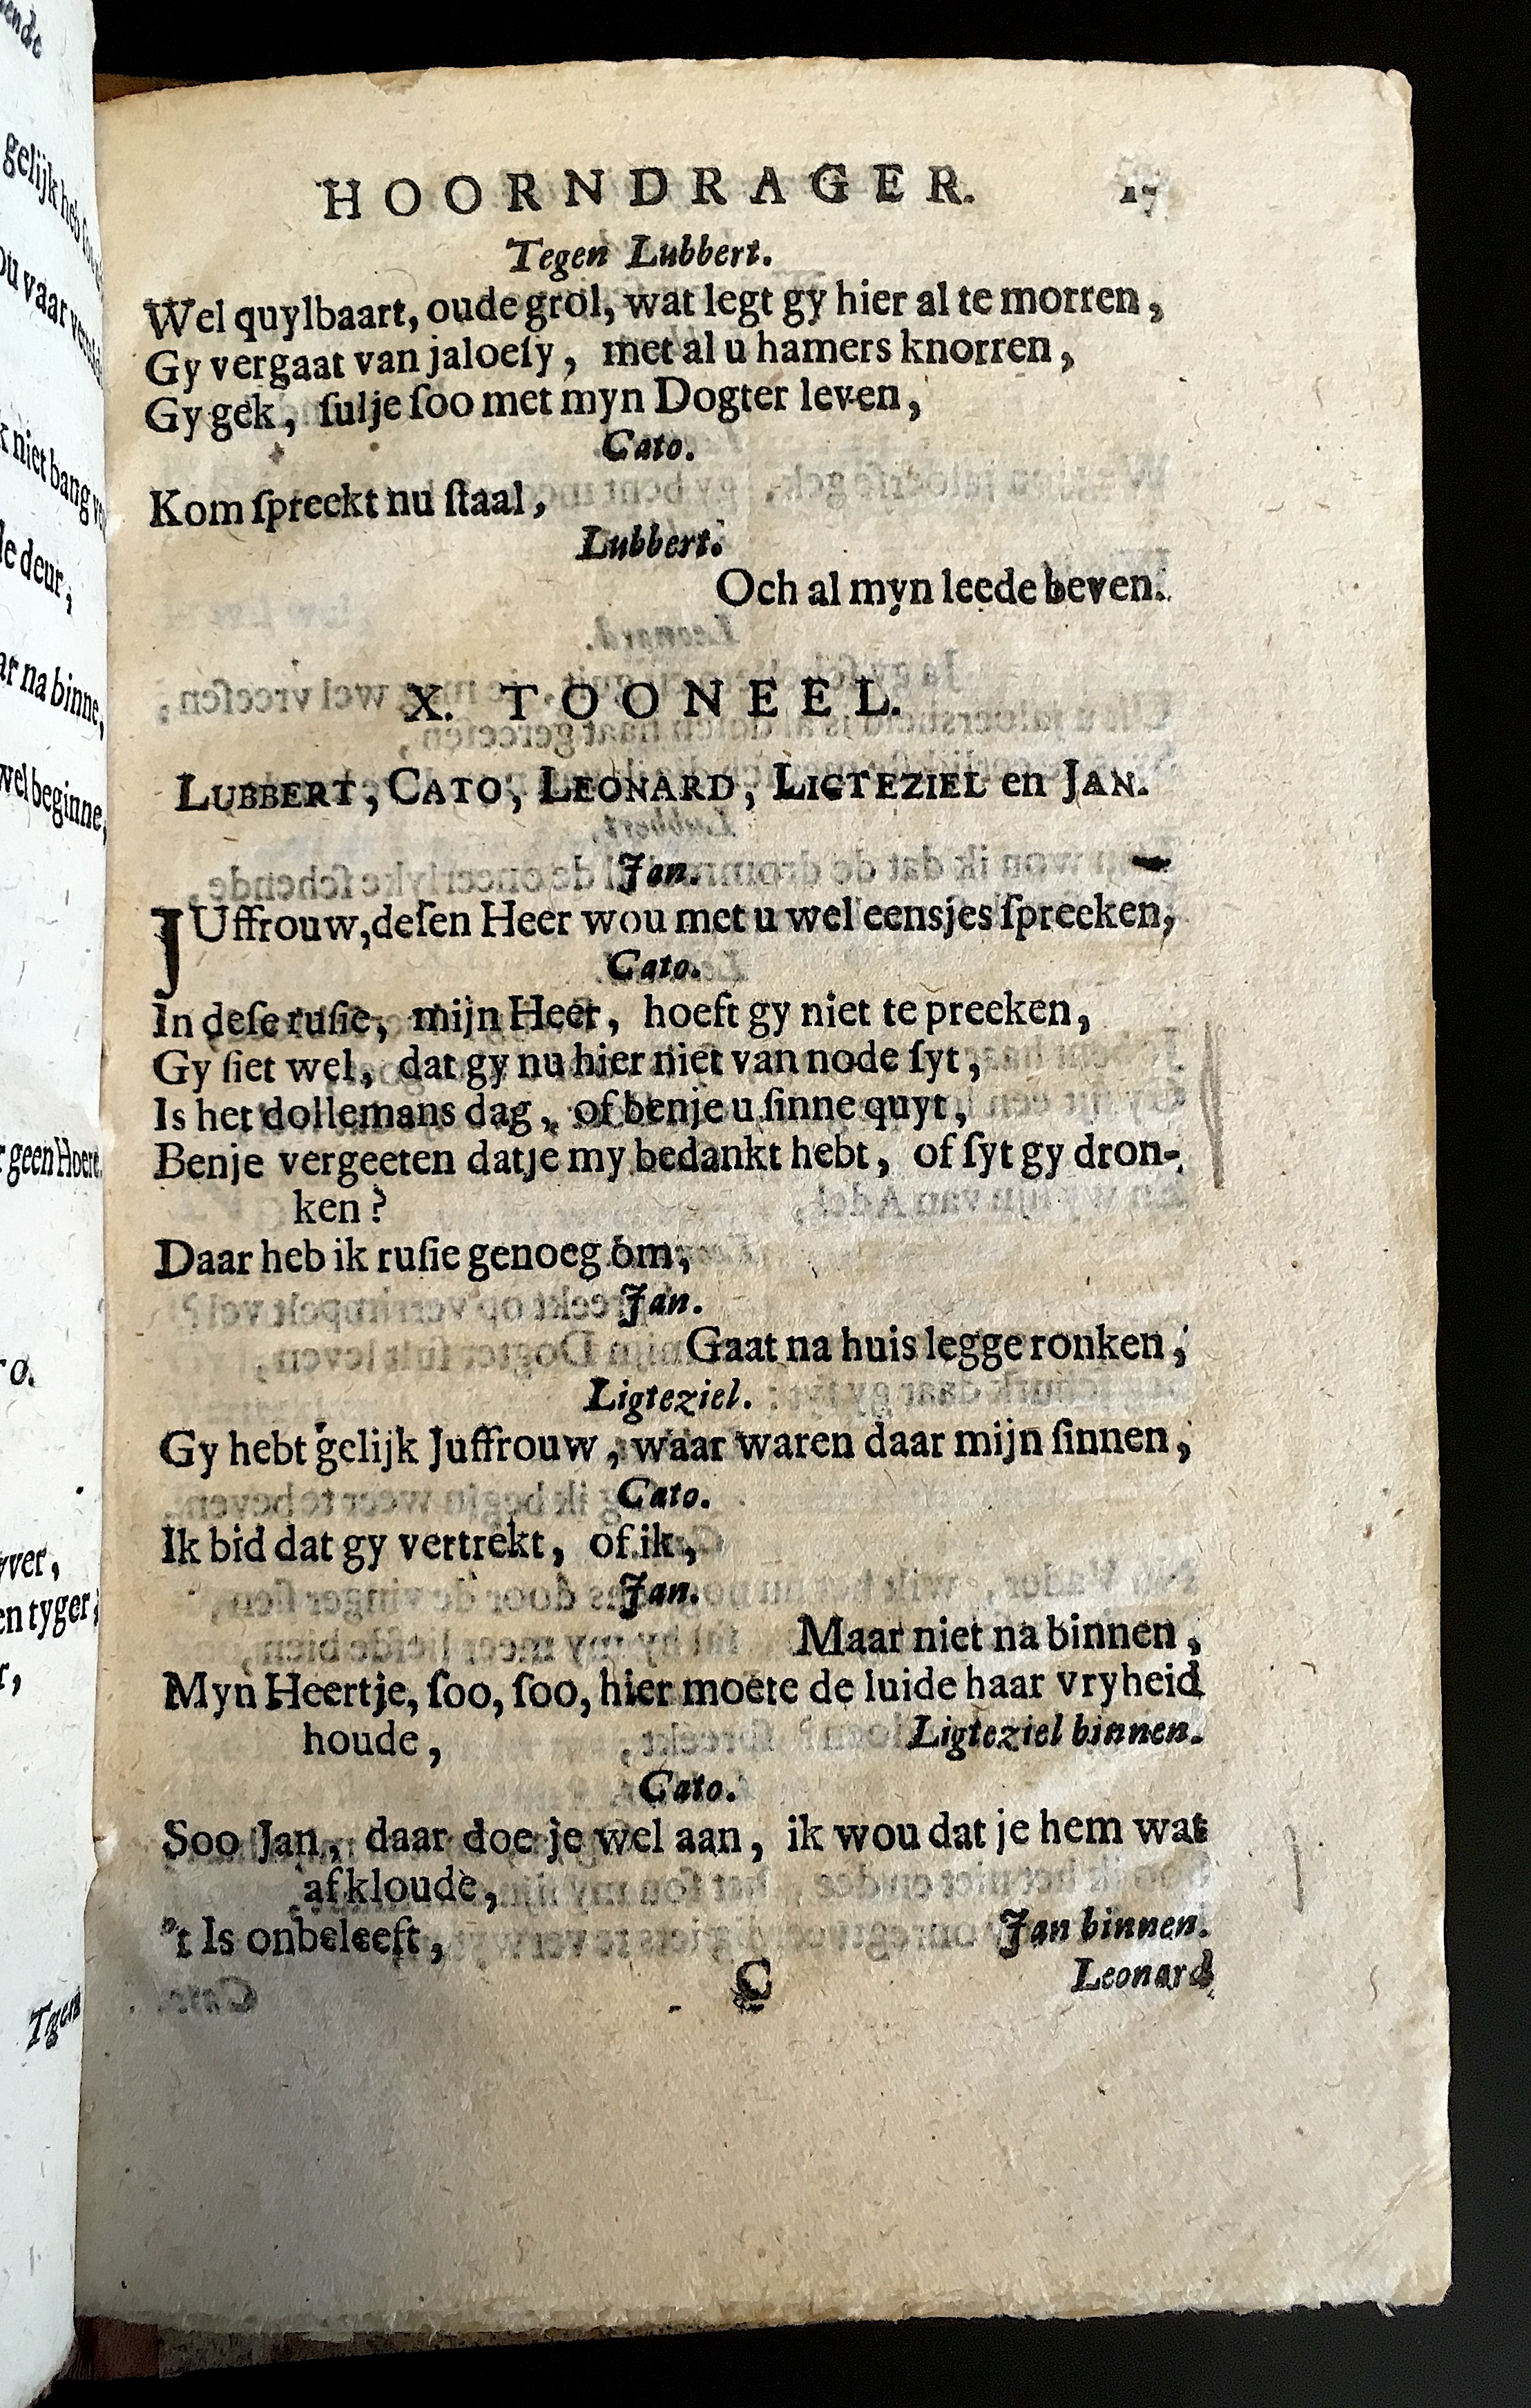 HOORNDRAGER. 17
Tegen Lubbert.
Wel quylbaart, oude grol, wat legt gy hier al te morren,
Gy vergaat van jaloeſy, met al u hamers knorren,
Gy gek, ſulje ſoo met myn Dogter leven,
Cato.
Kom ſpreekt nu ſtaal,
Lubbert.
Och al myn leede beven.
X. TOONEEL.
LUBBERT, CATO, LEONARD, LIGTEZIEL en JAN.
Jan.
JUffrouw, deſen Heer wou met u wel eensjes ſpreeken,
Cato.
In deſe ruſie, mijn Heer, hoeft gy niet te preeken,
Gy ſiet wel, dat gy nu hier niet van node ſyt,
Is het dollemans dag, of benje u ſinne quyt,
Benje vergeeten datje my bedankt hebt, of ſyt gy dron-
ken?
Daar heb ik ruſie genoeg om,
Jan.
Gaat na huis legge ronken,
Ligteziel.
Gy hebt gelijk Juffrouw, waar waren daar mijn ſinnen,
Cato.
Ik bid dat gy vertrekt, of ik,
Jan.
Maar niet na binnen,
Myn Heertje, ſoo, ſoo, hier moete de luide haar vryheid
houde, Ligteziel binnen.
Cato.
Soo Jan, daar doe je wel aan, ik wou dat je hem wat
afkloude,
't Is onbeleeft, Jan binnen.
C Leonard
gelijk heb
ou vaar
k niet bang
de deur,
ar na binne,
wel beginne,
geen Hoere
ro.
yver,
en tyger,
r,
Tgen